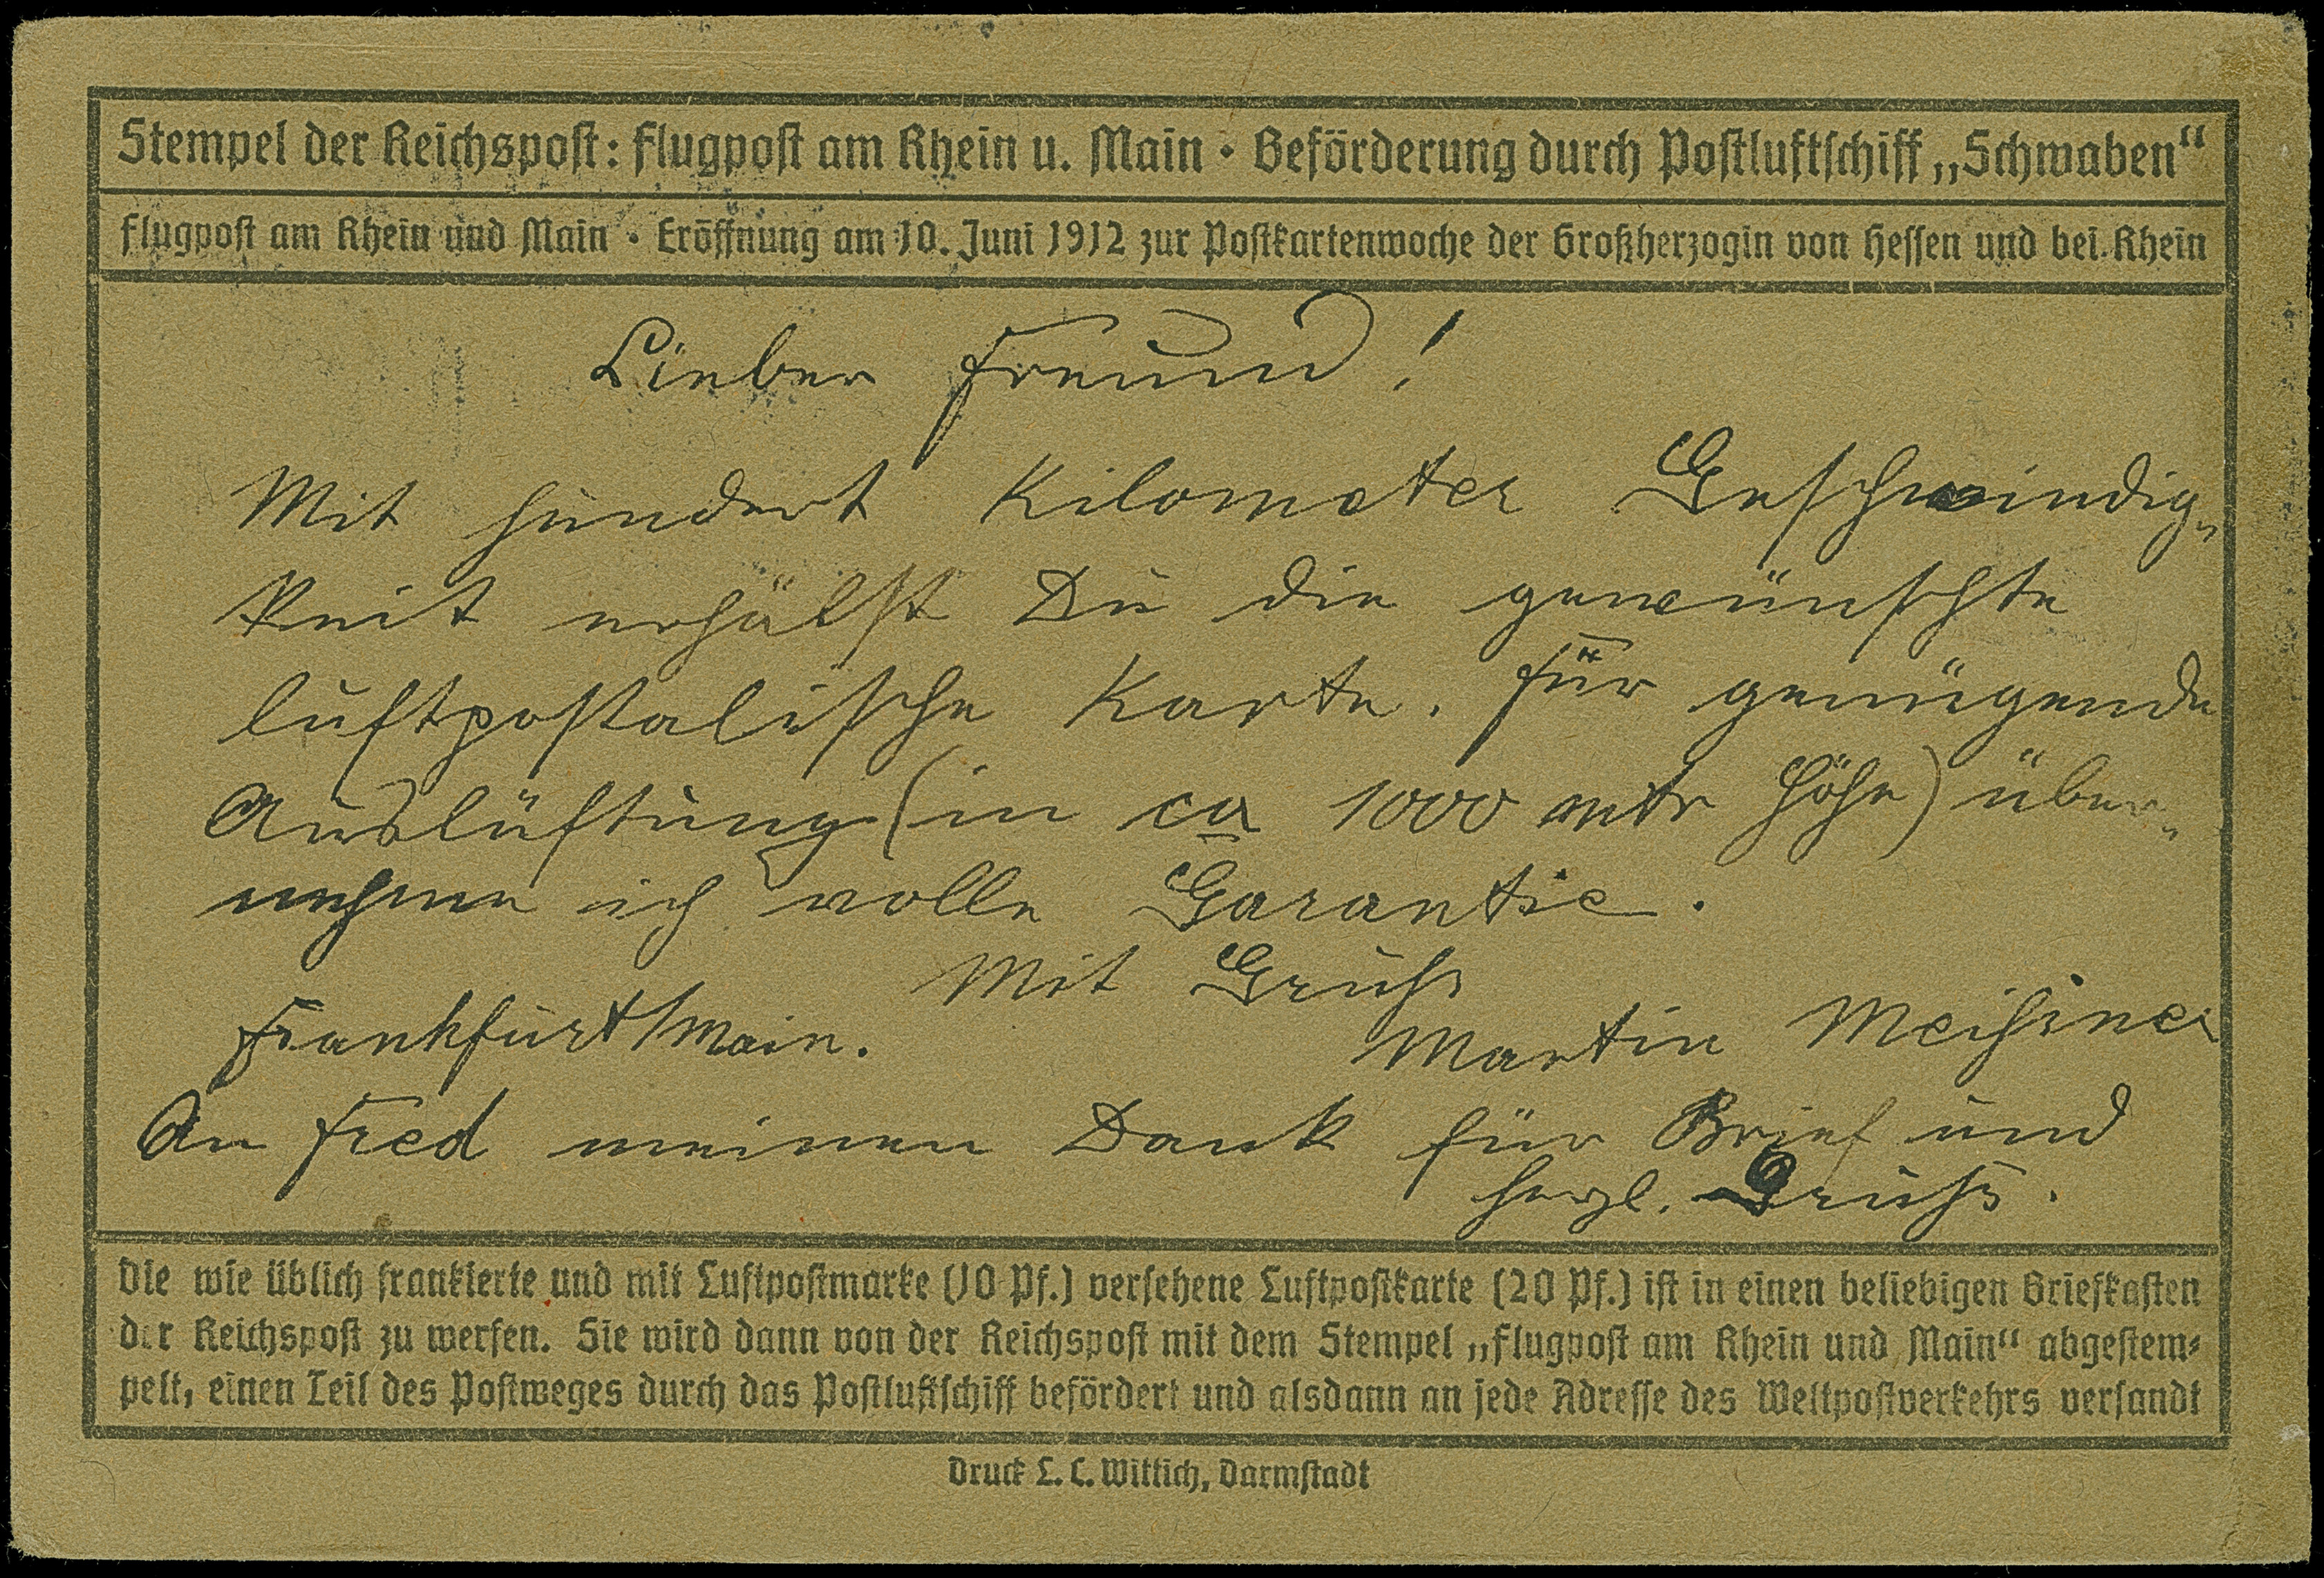 Stempel der Reichspost: Flugpost am Rhein u. Main · Beförderung durch Postluftschiff „Schwaben“
Flugpost am Rhein und Main · Eröffnung am 10. Juni 1912 zur Postkartenwoche der Großherzogin von Hessen und bei Rhein
Lieber Freund!
Mit hundert Kilometer Geschwindig„
keit erhälst Du die gewünschte
luftpostalische Karte. Für genügende
Auslüftung (in ca 1000 mtr Höhe) über„
nehme ich volle Garantie.
Mit Gruss
Frankfurt/Main.
Martin Meissner
An Fred meinen Dank für Brief und
herzl. Gruss.
Die wie üblich frankierte und mit Luftpostmarke (10 Pf.) versehene Luftpostkarte (20 Pf.) ist in einen beliebigen Briefkasten
der Reichspost zu werfen. Sie wird dann von der Reichspost mit dem Stempel „Flugpost am Rhein und Main“ abgestem-
pelt, einen Teil des Postweges durch das Postluftschiff befördert und alsdann an jede Adresse des Weltpostverkehrs versandt
Druck L. C. Wittich, Darmstadt